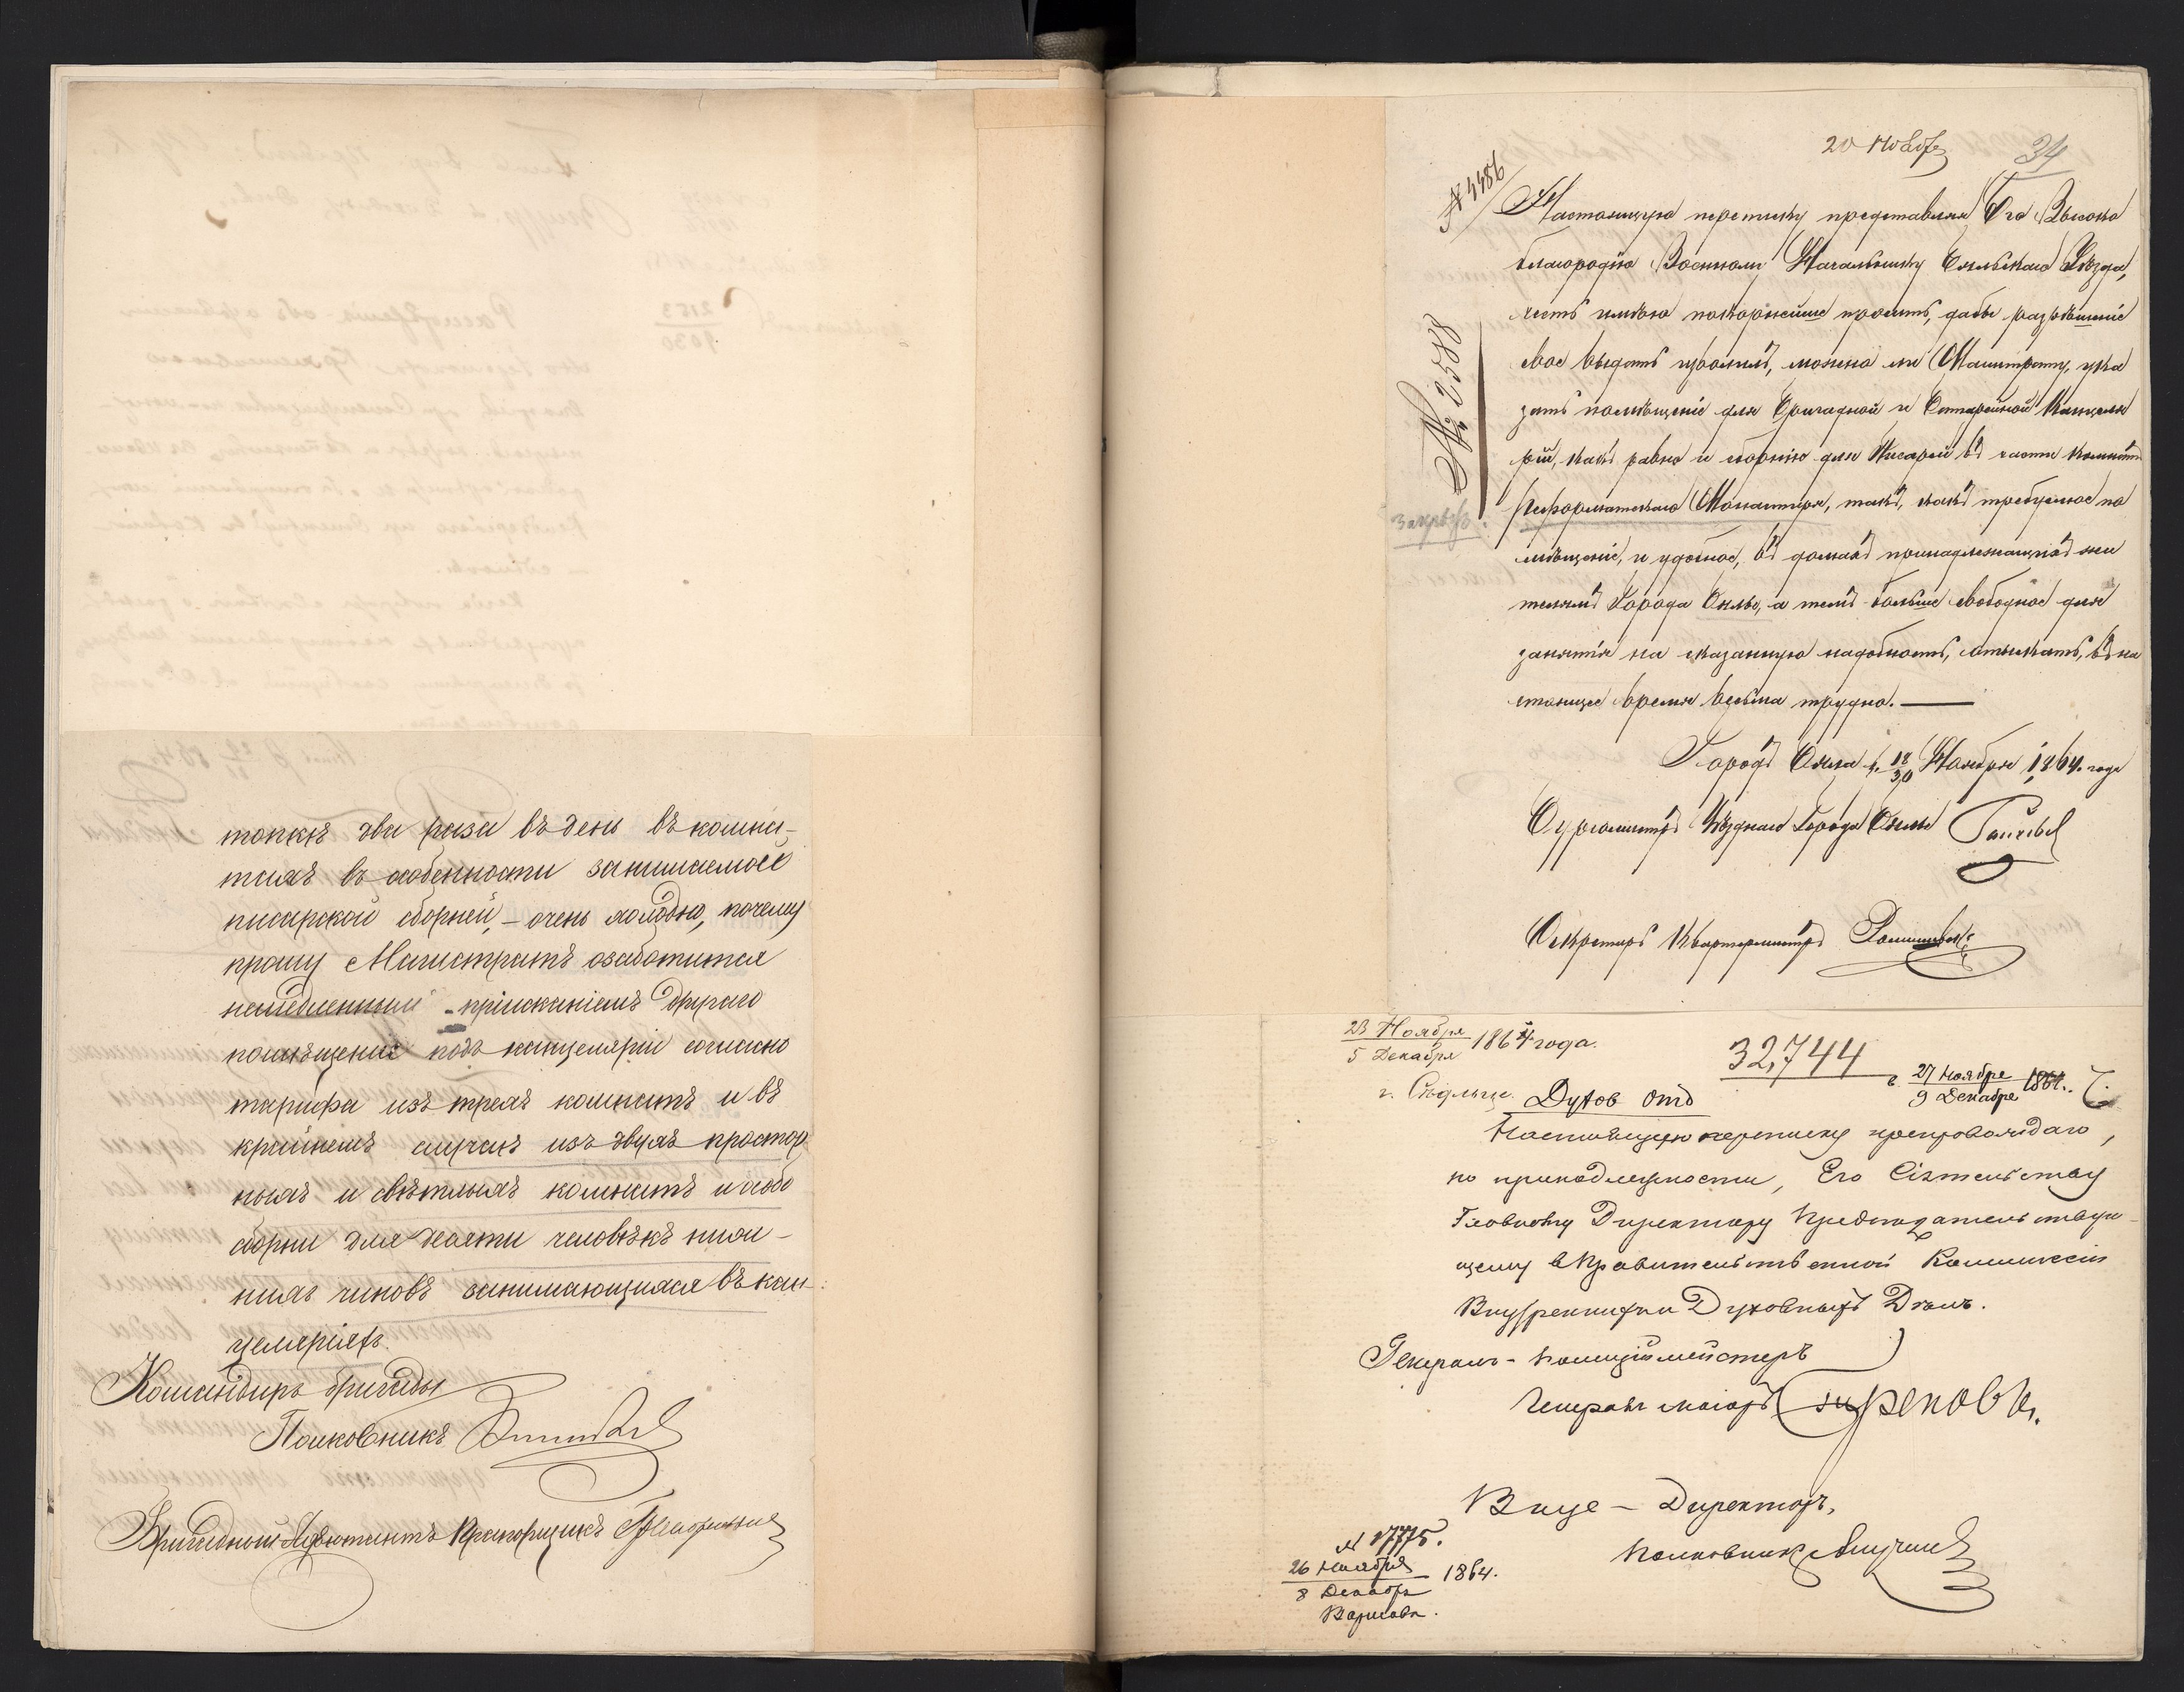 топкѣ два раза въ день въ комна-
тахъ въ особенности занимаемой
писарской сборней, – очень холодно, почему
прошу Магистратъ озаботится
немедленнымъ прiисканiемъ другаго
помѣщенiе подъ канцелярiи согласно
тарифа изъ трехъ комнатъ и въ
крайнемъ случаѣ изъ двухъ простор
ныхъ и свѣтлыхъ комнатъ и особо
сборни для десяти человѣкъ ниж-
нихъ чиновъ занимающихся въ кан-
целярiяхъ.
Командиръ бригады
Полковникъ
Бригадный Адъютантъ Прапорщикъ
20 Ноября
34
№ 4486
№ 2588
Настоящую переписку представляя Его Высоко
благородiю Военному Начальнику Уѣзда,
честь имѣю покорнѣйше просить, дабы разрѣшенiе
свое выдать изволилъ, можно ли Магистрату, ука
зать помѣщенiе для Бригадной и Батарейной Канцеля
рiй, какъ равно и сборню для Писарей въ части комнатъ
Реформатскаго Монастыря, такъ, какъ требуемое по
мѣщенiе, и удобное, въ домахъ принадлежащихъ жи
телямъ Города, а темъ больше свободное для
занятiя на сказанную надобность, отыскать, въ на
стоящее время весьма трудно. —
Городъ 18/30 Ноября 1864. года
Бургомистръ Уѣзднаго Города
Секретарь Квартермистръ
23 Ноября
5 Декабря 1864 года.
г. Сѣдльце.
32,744
27 Ноября
9 Декабря 1864.
Духов Отд
Настоящую переписку препровождаю,
по принадлежности, Его Сiятельству
Главному Директору Предсѣдательствую-
щему в Правительственной Коммиссiи
Внутреннихъ и Духовныхъ Дѣлъ.
Генералъ-Полицiймейстеръ
Генералъ Маiоръ Треповъ.
Вице – Директоръ,
Полковникъ
№ 17775.
26 Ноября
8 Декабря 1864.
Варшава.